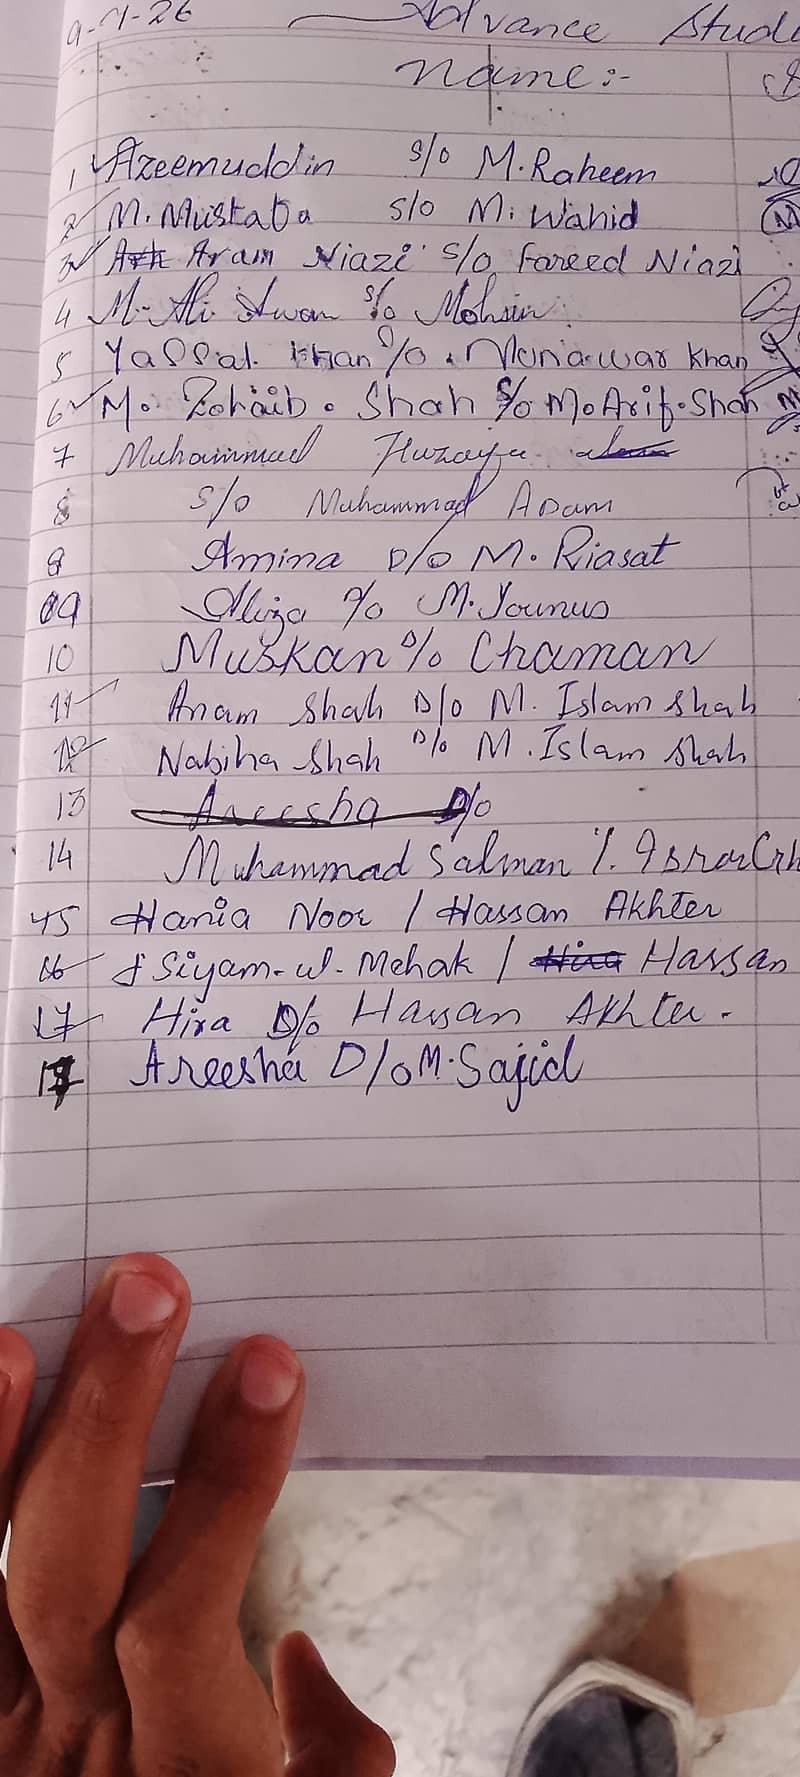 9-1-26 Advance Stude
Name:-
1 Azeemuddin s/o M.Raheem
2 M. Mustaba s/o M. Wahid
3 Aram Niazi s/o Fareed Niazi
4 M-Ali Awan s/o Mohsin
5 Khan s/o Munawar Khan
6 Mo. Zohaib. Shah S/o Mo Arif. Shah
7 Muhammad Huzayfa
8 s/o Muhammad Adam
8 Amina D/o M. Riasat
09 Aliza D/o M. Younus
10 Muskan D/o Chaman
11 Anam Shah D/o M. Islam Shah
12 Nabiha Shah D/o M. Islam Shah
13 Areesha D/o
14 Muhammad Salman
15 Hania Noor / Hassan Akhter
16 Siyam-ul-Mehak / Hira Hassan
17 Hira D/o Hassan Akhter.
Areesha D/o M. Sajid